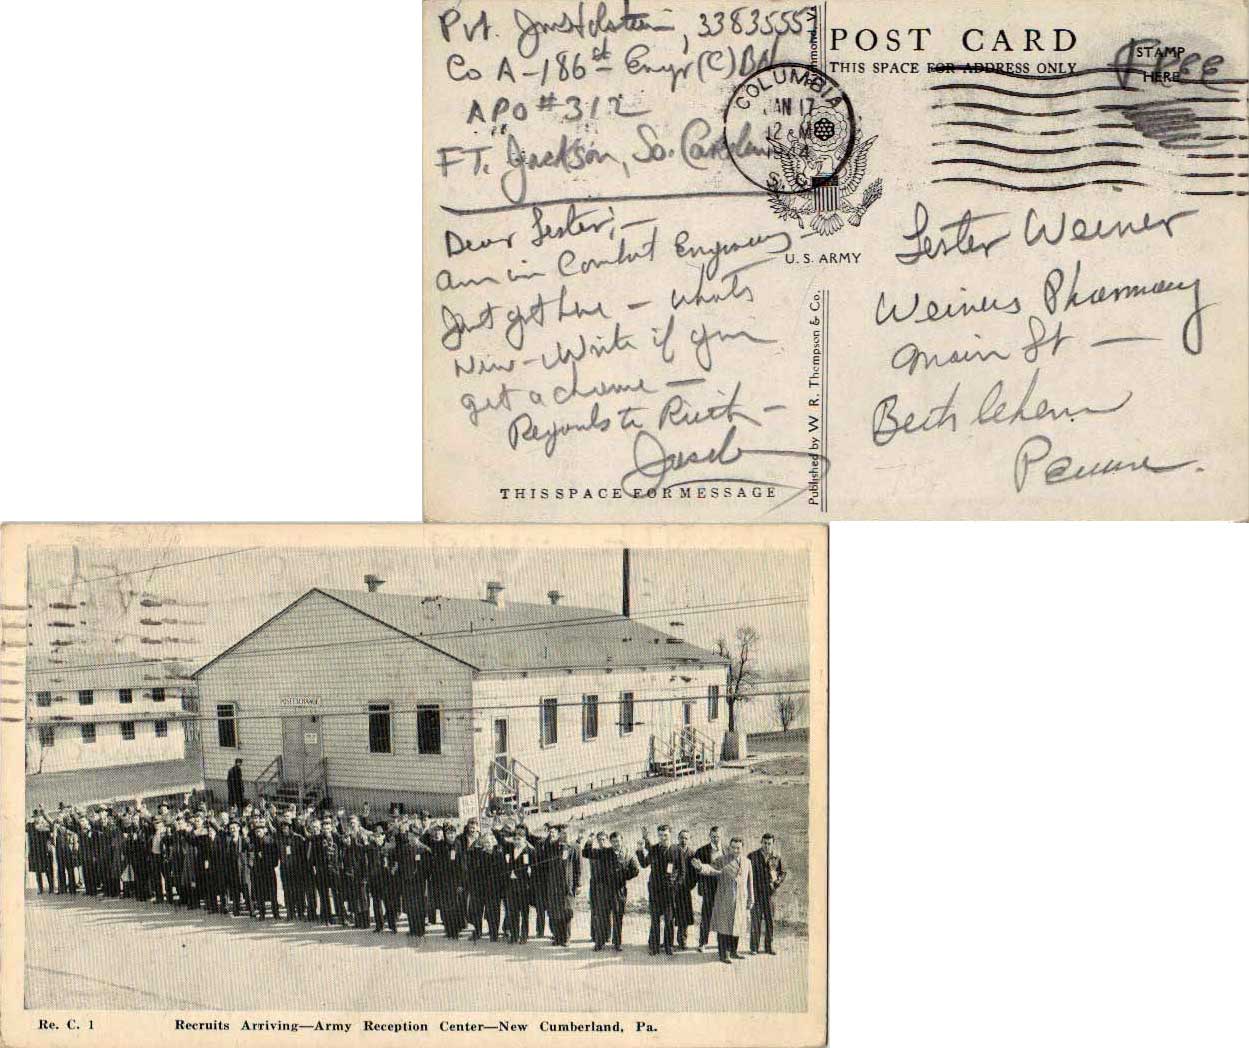 Pvt. Jm Holstein, 33835557
Co A-186st Engr (C) BN
APO #312
FT. Jackson, So. Carolina
Dear Lester; -
Am in Combat Engineers -
Just got here - What's
New - Write if you
get a chance -
Regards to Ruth -
THIS SPACE FOR MESSAGE
Published by W. R. Thompson & Co.
POST CARD
THIS SPACE FOR ADDRESS ONLY
STAMP
HERE
Free
COLUMBIA
JAN 17
12 M
1944
S. C.
U. S. ARMY
Lester Weiner
Weiners Pharmacy
Main St -
Bethlehem
Penna.
POST EXCHANGE
Re. C. 1 Recruits Arriving—Army Reception Center—New Cumberland, Pa.